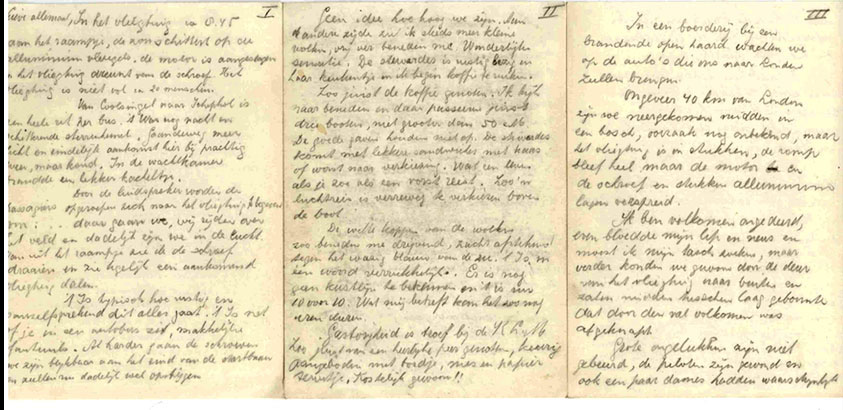 I
Lieve allemaal, In het vliegtuig no 8.45
aan het raampje, de zon schittert op de
alluminium vleugels, de motor is aangeslagen
en het vliegtuig dreunt van de schroef. Het
vliegtuig is niet vol ca 20 menschen.
Van Coolsingel naar Schiphol is
een heele uit per bus. 't Was nog nacht en
schitterende sterrenhemel. Gaandeweg meer
licht en eindelijk aankomst hier bij prachtig
weer, maar koud. In de wachtkamer
brandde een lekker kacheltje.
Door de luidspreker worden de
passagiers opgeroepen zich naar het vliegtuig te begeven
en : . . . daar gaan we, wij rijden over
het veld en dadelijk zijn we in de lucht.
Van uit het raampje zie ik de schroef
draaien en zie tegelijk een aankomend
vliegtuig dalen.
't Is typisch hoe rustig en
vanzelfsprekend dit alles gaat. 't Is net
of je in een autobus zit, makkelijke
fauteuils. Al harder gaan de schroeven
we zijn blijkbaar aan het eind van de startbaan
en zullen nu dadelijk wel opstijgen
II
Geen idee hoe hoog we zijn. Aan
d'andere zijde zie ik steeds meer kleine
wolken, vrij ver beneden me. Wonderlijke
sensatie. De stewardes is rustig bezig in
haar keukentje en ik begin koffie te ruiken.
Zoo juist de koffie genoten. Ik kijk
naar beneden en daar passeeren juist
drie booten, niet grooter dan 50 cM.
De goede gaven houden niet op. De stewardes
komt met lekkere sandwiches met kaas
of worst naar verkiezing. Wat een leven
als je zoo als een vorst reist. Zoo'n
luchtreis is verreweg te verkiezen boven
de boot.
De witte koppen van de wolken
zoo beneden me drijvend, zacht aftekenend
tegen het wazig blauw van de zee. 't Is in
één woord verrukkelijk. Er is nog
geen kustlijn te bekennen en it is nu
10 voor 10. Wat mij betreft kan het zoo nog
uren duren.
Gastvrijheid is troef bij de K.L.M.
Zoo juist van een heerlijke peer genoten, keurig
aangeboden met bordje, mes en papier
servetje, Kostelijk gewoon!!
III
In een boerderij bij een
brandende open haard wachten we
op de auto's die ons naar Londen
zullen brengen.
Ongeveer 40 km van Londen
zijn we neergekomen midden in
een bosch, oorzaak nog onbekend, maar
het vliegtuig is in stukken, de romp
bleef heel maar de motor en
de schroef en stukken alluminium
lagen verspreid.
Ik ben volkomen ongedeerd,
even bloedde mijn lip en neus en
moest ik mijn tasch zoeken, maar
verder konden we gewoon door de deur
van het vliegtuig naar buiten en
zaten midden tusschen laag geboomte
dat door den val volkomen was
afgeknapt.
Groote ongelukken zijn niet
gebeurd, de piloten zijn gewond en
ook een paar dames hadden waarschijnlijk